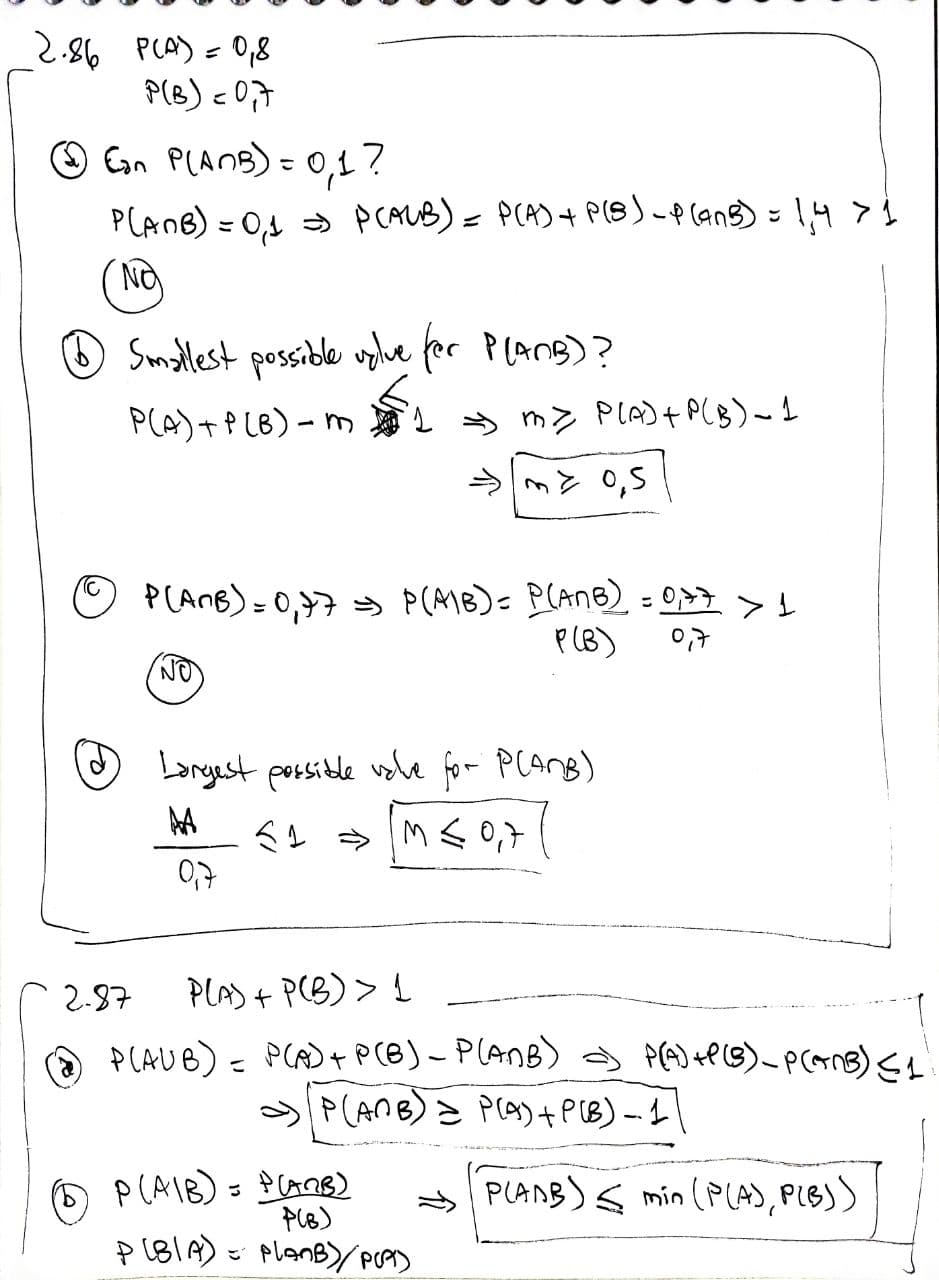 2.86 P(A) = 0,8
P(B) = 0,7
ⓐ Can P(A∩B) = 0,1?
P(A∩B) = 0,1 ⇒ P(A∪B) = P(A) + P(B) - P(A∩B) = 1,4 > 1
NO
ⓑ Smallest possible value for P(A∩B)?
P(A) + P(B) - m ≤ 1 ⇒ m ≥ P(A) + P(B) - 1
⇒ m ≥ 0,5
ⓒ P(A∩B) = 0,77 ⇒ P(A|B) = P(A∩B)/P(B) = 0,77/0,7 > 1
NO
ⓓ Largest possible value for P(A∩B)
M/0,7 ≤ 1 ⇒ M ≤ 0,7
2.87 P(A) + P(B) > 1
ⓐ P(A∪B) = P(A) + P(B) - P(A∩B) ⇒ P(A) + P(B) - P(A∩B) ≤ 1
⇒ P(A∩B) ≥ P(A) + P(B) - 1
ⓑ P(A|B) = P(A∩B)/P(B) ⇒ P(A∩B) ≤ min(P(A), P(B))
P(B|A) = P(A∩B)/P(A)